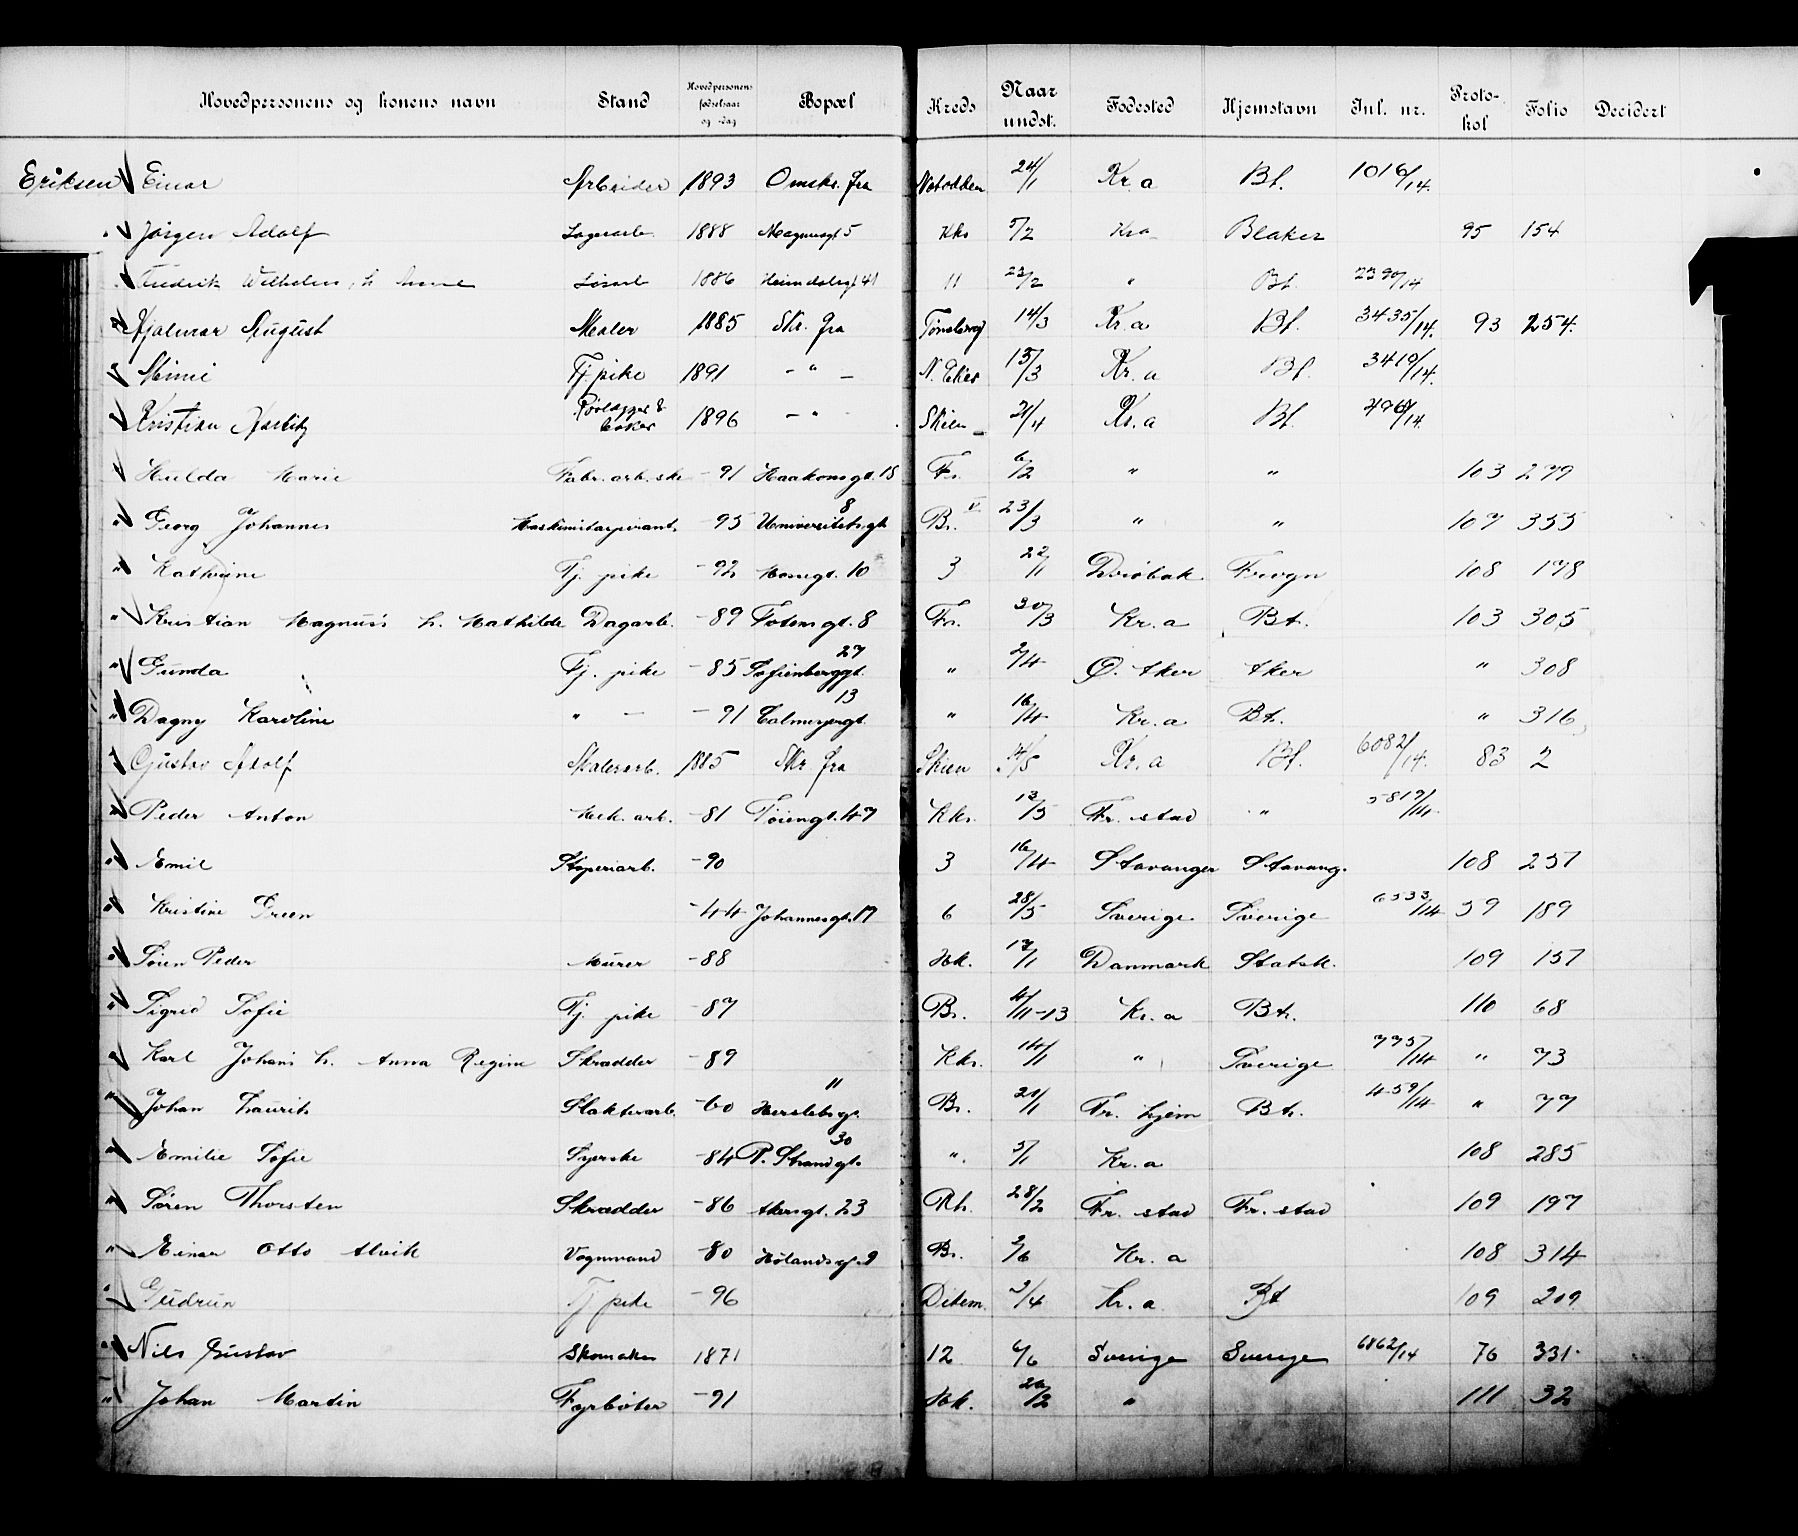 Hovedpersonens og konens navn Stand Hovedpersonens fødselsaar og -dag Bopæl Kreds Naar undst. Fødested Hjemstavn Inl. nr. Proto-kol Folio Decidert
Eriksen Einar Arbeider 1893 Omskr. fra Notodden 24/1 Kr.a Bt. 1016/14.
Jørgen Adolf Lagerarb. 1888 Magnusgt 5 Kks 5/2 Kra Blaker 95 154
" Fredrik Wilhelm, h. Løsarb 1886 Heimdalsgt 41 11 23/2 " Bt. 2390/14
" Hjalmar August Maler 1885 Skr. fra Tønsberg 14/3 Kr.a Bt. 3435/14. 93 254.
" Mimi Tj pike 1891 - " - N. Eker 13/3 Kr.a Bt. 3410/14.
Kristian Rørlægger & 1896 - " Skien 21/4 Kr.a Bt.
" Hulda Marie Fabr.arb.ske -91 Haakonsgt. 15 Fr. 6/2 " " 103 279
" Georg Johannes Maskinistaspirant -95 Universitetsgt. 8 Br. V 23/3 " " 107 355
" Kathrine Tj. pike -92 Mosegt. 10 3 22/1 Drøbak Frogn 108 178
" Kristian Magnus h. Mathilde Dagarb. -89 Totensgt. 8 Fr. 30/3 Kr.a Bt. 103 305
" Gunda Tj. pike -85 Sofienberggt. 27 " 2/4 Ø. Aker Aker " 308
" Dagny Karoline " - -91 Calmeyersgt. 13 " 16/4 Kr.a Bt. " 316
" Gustav Adolf Malerarb. 1885 Skr fra Skien 14/5 Kr.a Bt. 6082/14. 83 2
" Peder Anton Mek. arb. -81 Tøiengt. 47 Kks. 13/5 Fr. stad " 5819/14.
" Emil Støperiarb. -90 3 16/4 Stavanger Stavang. 108 257
" Kristine Green -44 Johannesgt. 17 6 28/5 Sverige Sverige 6533/14 59 189
" Søren Peder Murer -88 Hk. 17/1 Danmark Statsk. 109 157
" Sigrid Sofie Tj. pike -87 Br. 4/11-13 Kr.a Bt. 110 68
" Karl Johan h. Anna Regine Skrædder -89 Kks. 14/1 " Sverige 775/14 " 73
" Johan Laurits Slakterarb. -60 Herslebsgt. 11 Br. 21/1 Tr. hjem Bt. 459/14 " 77
" Emilie Sofie Syerske -84 P. Strandgt. 30 " 5/1 Kr.a 108 285
" Søren Thorsten Skrædder -86 Akersgt. 23 Rh. 28/2 Fr. stad Fr. stad 109 197
" Einar Otto Alvik Vognmand -80 Hølandsgt. 2 Br. 2/6 Kr.a 108 314
" Gudrun Tj pike -96 Ditem. 3/4 Kr.a Bt 109 209
" Nils Gustav Skomaker 1871 12 6/6 Sverige Sverige 6862/14 76 331.
" Johan Martin Fyrbøter -91 Hk. 20/2 " 111 32